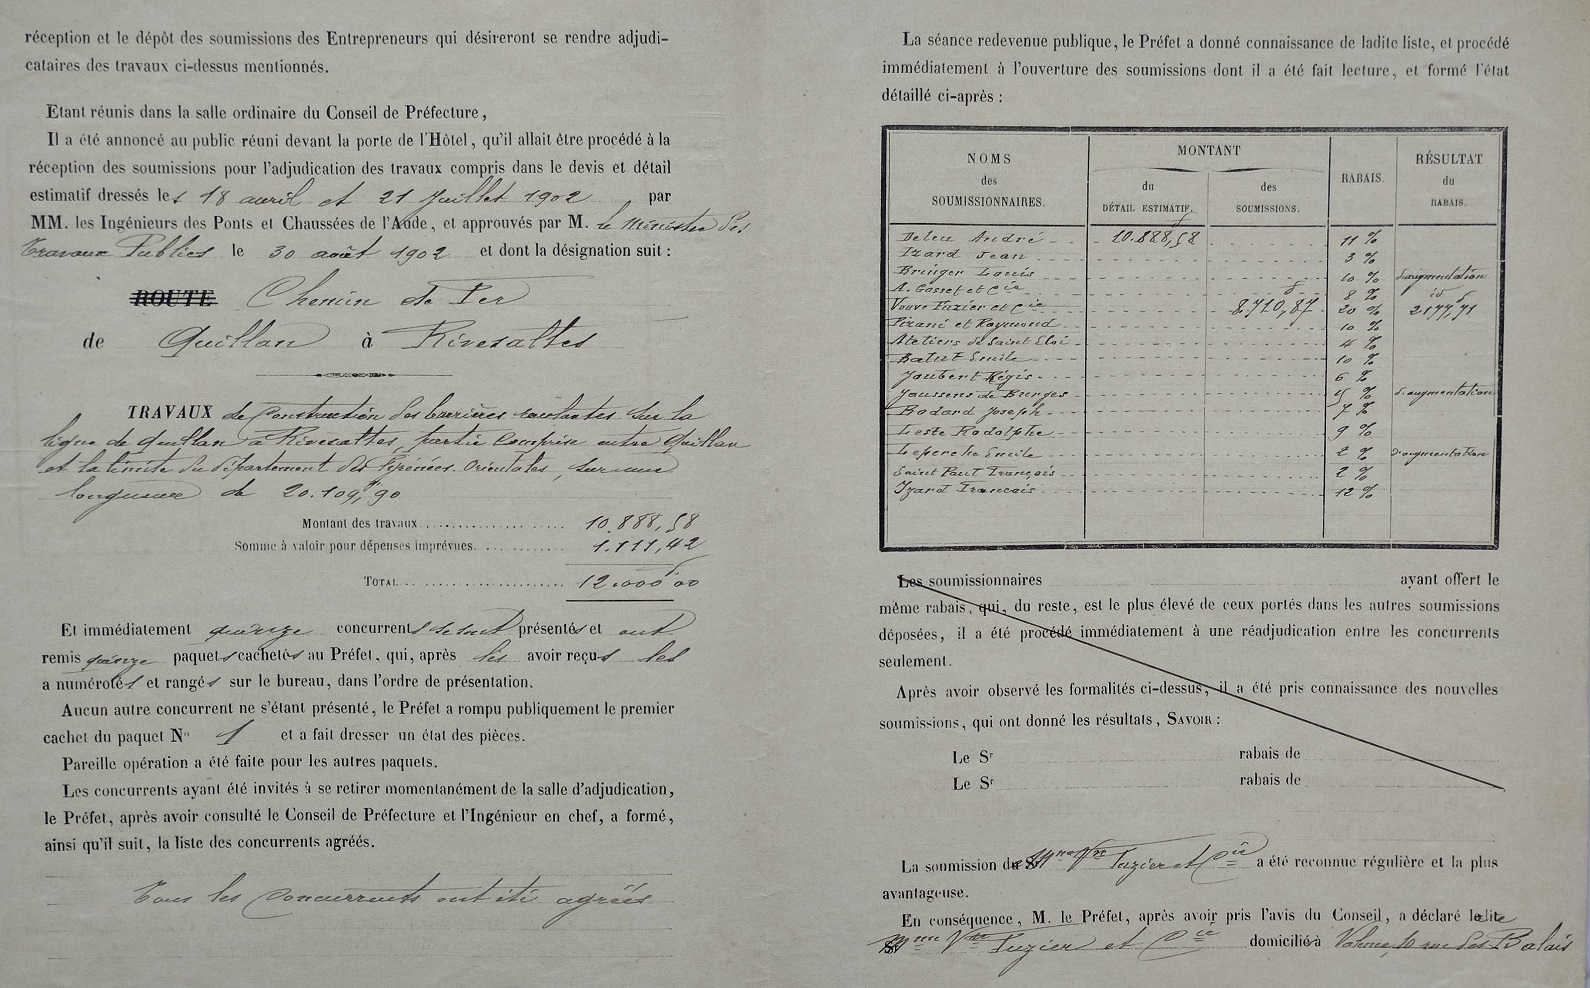 réception et le dépôt des soumissions des Entrepreneurs qui désireront se rendre adjudi-
cataires des travaux ci-dessus mentionnés.
Etant réunis dans la salle ordinaire du Conseil de Préfecture,
Il a été annoncé au public réuni devant la porte de l'Hôtel, qu'il allait être procédé à la
réception des soumissions pour l'adjudication des travaux compris dans le devis et détail
estimatif dressés les 18 avril et 21 Juillet 1902 par
MM. les Ingénieurs des Ponts et Chaussées de l'Aude, et approuvés par M. le Ministre des
Travaux Publics le 30 août 1902 et dont la désignation suit :
ROUTE Chemin de Fer
de Quillan à Rivesaltes
TRAVAUX de Construction des barrières roulantes sur la
ligne de Quillan à Rivesaltes, partie comprise entre Quillan
et la limite du département des Pyrénées-Orientales, sur une
longueur de 20.109,90
Montant des travaux 10.888,58
Somme à valoir pour dépenses imprévues. 1.111,42
TOTAL 12.000,00
Et immédiatement quinze concurrents se sont présentés et ont
remis quinze paquets cachetés au Préfet, qui, après les avoir reçus les
a numérotés et rangés sur le bureau, dans l'ordre de présentation.
Aucun autre concurrent ne s'étant présenté, le Préfet a rompu publiquement le premier
cachet du paquet No 1 et a fait dresser un état des pièces.
Pareille opération a été faite pour les autres paquets.
Les concurrents ayant été invités à se retirer momentanément de la salle d'adjudication,
le Préfet, après avoir consulté le Conseil de Préfecture et l'Ingénieur en chef, a formé,
ainsi qu'il suit, la liste des concurrents agréés.
Tous les concurrents ont été agréés
La séance redevenue publique, le Préfet a donné connaissance de ladite liste, et procédé
immédiatement à l'ouverture des soumissions dont il a été fait lecture, et formé l'état
détaillé ci-après :
NOMS des SOUMISSIONNAIRES. MONTANT du DÉTAIL ESTIMATIF. des SOUMISSIONS. RABAIS. RÉSULTAT du RABAIS.
Deleu André 10.888,58 11 %
Izard Jean 3 %
Bringer Louis 10 % d'augmentation
A. Gasset et Cie 8 % id
Veuve Fuzier et Cie 8.710,87 20 % 2177,71
Pizani et Raymond 10 %
Ateliers de Saint Eloi 4 %
Batut Emile 10 %
Joubert Régis 6 %
Jaussens de Burges % d'augmentation
Bodard Joseph 7 %
Leste Rodolphe 9 %
Leperche Emile 2 % d'augmentation
Saint Paul François 2 %
Izard Francois 12 %
Les soumissionnaires ayant offert le
même rabais, qui, du reste, est le plus élevé de ceux portés dans les autres soumissions
déposées, il a été procédé immédiatement à une réadjudication entre les concurrents
seulement.
Après avoir observé les formalités ci-dessus, il a été pris connaissance des nouvelles
soumissions, qui ont donné les résultats, SAVOIR :
Le Sr rabais de
Le Sr rabais de
La soumission de Mme Vve Fuzier et Cie a été reconnue régulière et la plus
avantageuse.
En conséquence, M. le Préfet, après avoir pris l'avis du Conseil, a déclaré ladite
Mme Vve Fuzier et Cie domicilié à rue des Balais